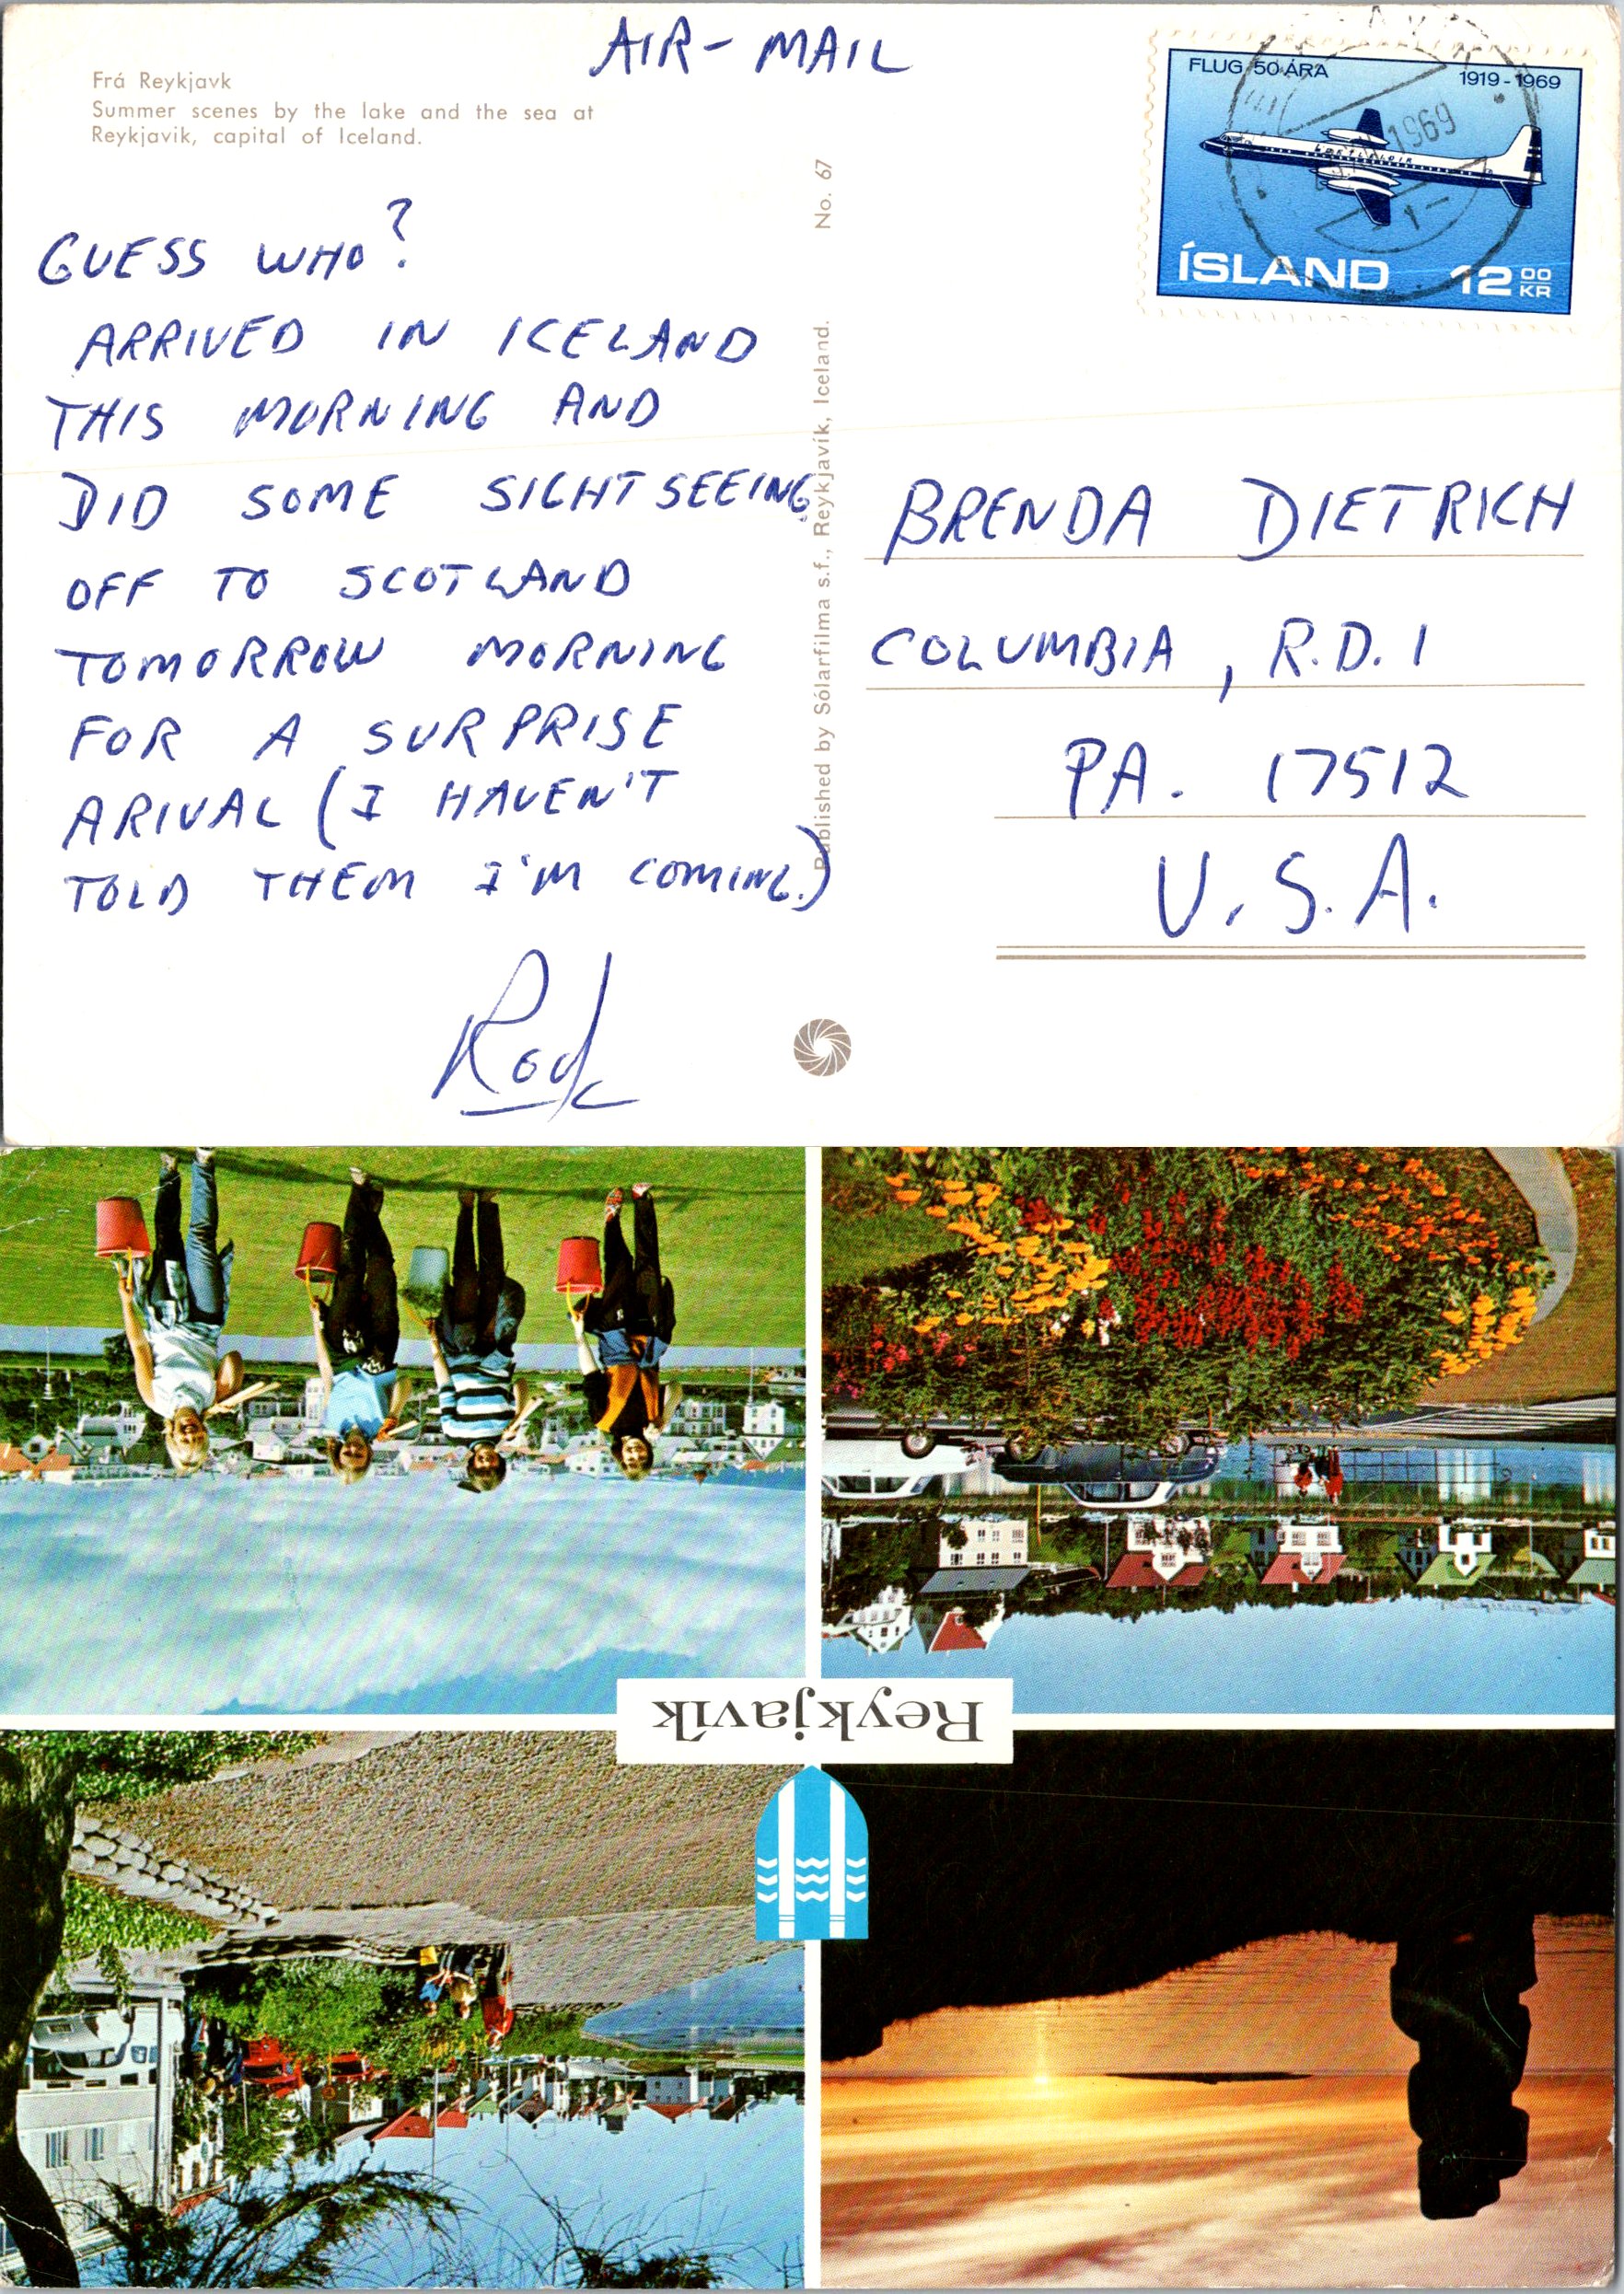 AIR-MAIL
Frá Reykjavk
Summer scenes by the lake and the sea at
Reykjavik, capital of Iceland.
GUESS WHO?
ARRIVED IN ICELAND
THIS MORNING AND
DID SOME SIGHTSEEING
OFF TO SCOTLAND
TOMORROW MORNING
FOR A SURPRISE
ARIVAL (I HAVEN'T
TOLD THEM I'M COMING.)
Rod
No. 67
Published by Sólarfilma s.f., Reykjavík, Iceland.
FLUG 50 ÁRA
1919-1969
LOFTLEIDIR
1969
1
ÍSLAND 12 00 KR
BRENDA DIETRICH
COLUMBIA, R.D. 1
PA. 17512
U.S.A.
Reykjavík